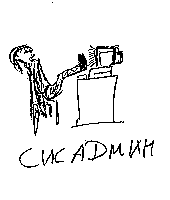 СИСАДМИН